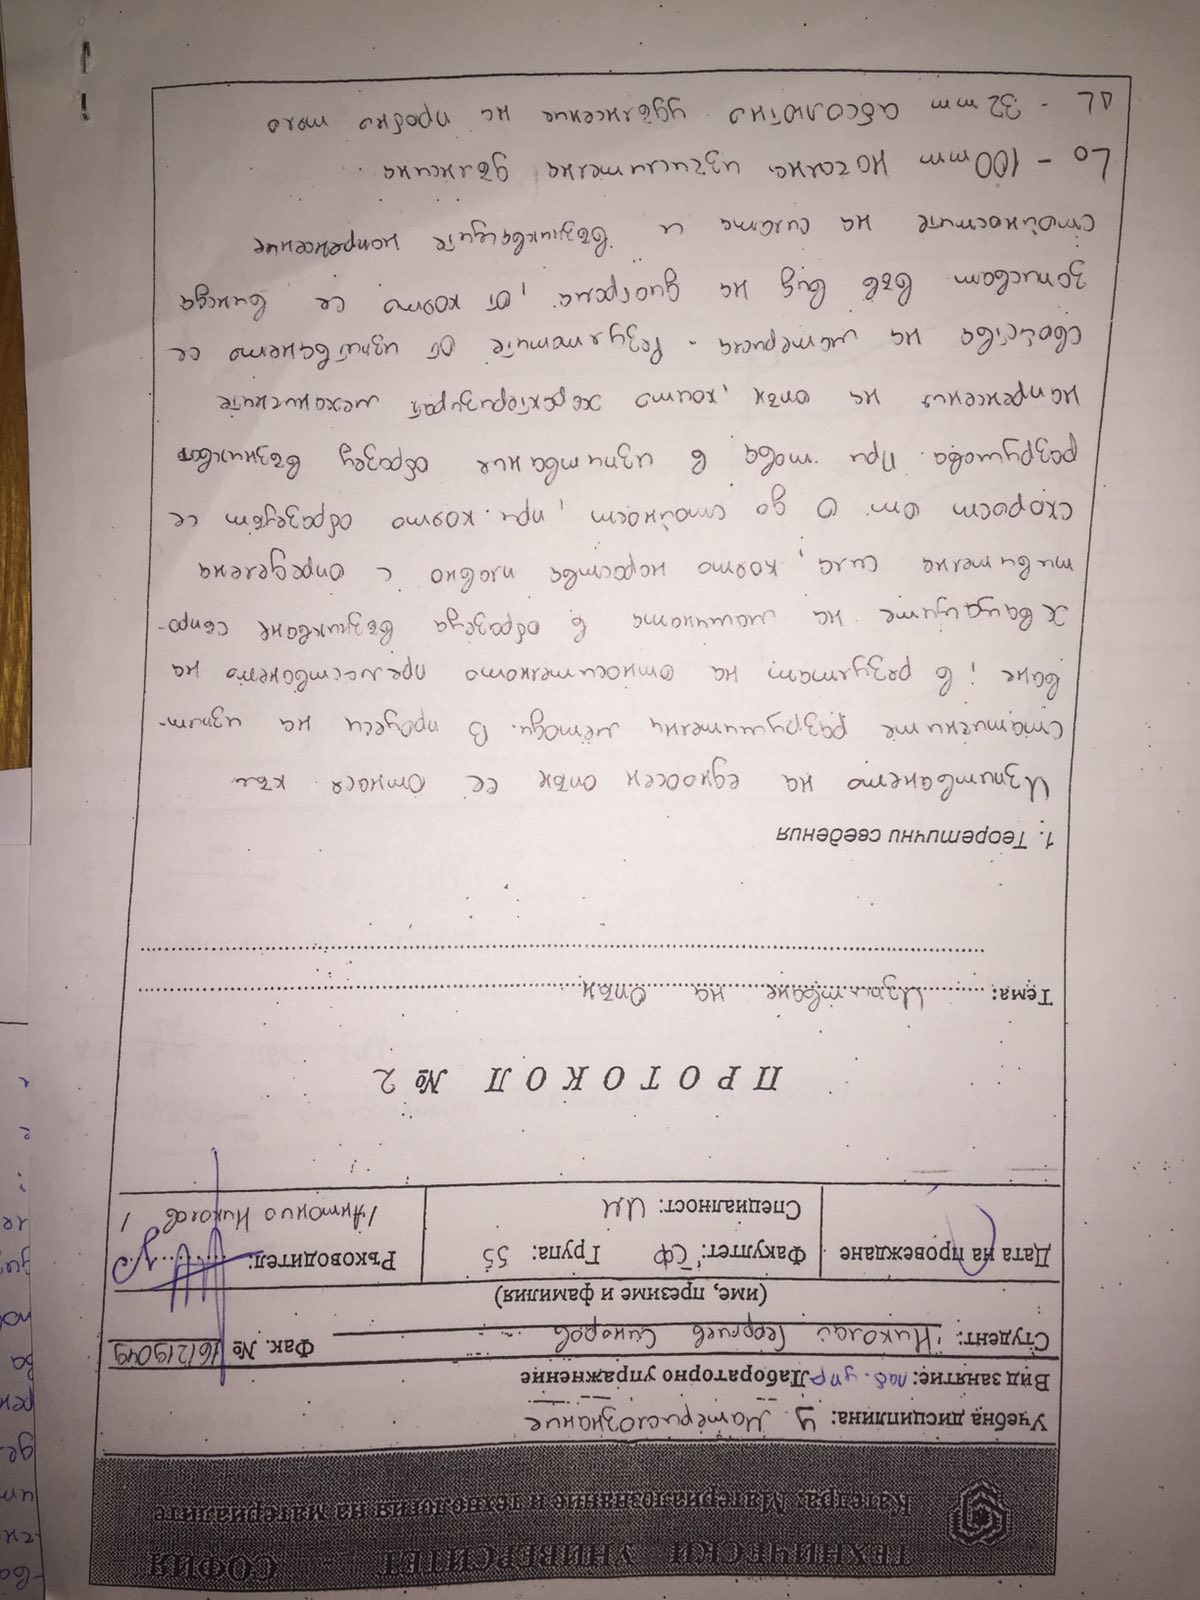 ТЕХНИЧЕСКИ УНИВЕРСИТЕТ - СОФИЯ
Катедра: Материалознание и технология на материалите
Учебна дисциплина: У. Материалознание
Вид занятие: лаб. упр Лабораторно упражнение
Студент: Николай Георгиев Фак. № 161219049
(име, презиме и фамилия)
Дата на провеждане Факултет: СФ Група: 55 Ръководител:
Специалност: ИМ /Антонио Николов /
ПРОТОКОЛ № 2
Тема: Изпитване на Опън
1. Теоретични сведения
Изпитването на едноосен опън се отнася към
статичните разрушителни методи. В процеси на изпит-
ване, в резултат на относителното преместването на
хващащите на машината в образеца възникване съпро-
тивителна сила, която нараства плавно с определена
скорост от 0 до стойност, при която образецът се
разрушава. При това в изпитвания образец възникват
напрежения на опън, които характеризират механичните
свойства на материала. Резултатите от изпитването се
записват във вид на диаграма, от която се вижда
стойностите на силата и възникващите напрежение
L₀ - 100mm начална изчислителна дължина.
ΔL - 32mm абсолютно удължение на пробно тяло